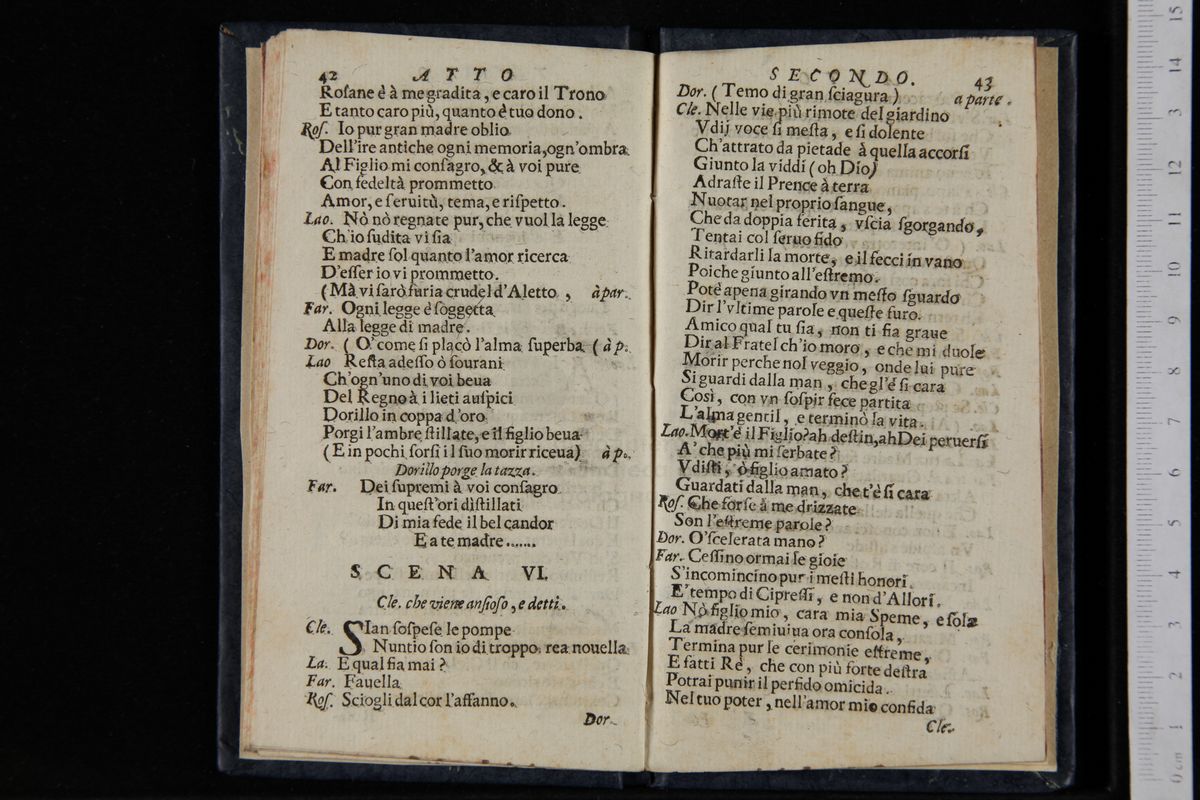 42 ATTO
Roſane è à me gradita, e caro il Trono
E tanto caro più, quanto è tuo dono.
Roſ. Io pur gran madre oblio
Dell'ire antiche ogni memoria, ogn'ombra
Al Figlio mi conſagro, & à voi pure
Con fedeltà prommetto
Amor, e ſeruitù, tema, e riſpetto.
Lao. Nò nò regnate pur, che vuol la legge
Ch'io ſudita vi ſia
E madre ſol quanto l'amor ricerca
D'eſſer io vi prommetto.
(Mà vi ſarò furia crudel d'Aletto, à par.
Far. Ogni legge è ſoggetta
Alla legge di madre.
Dor. (O' come ſi placò l'alma ſuperba (à p.
Lao Reſta adeſſo ò ſourani
Ch'ogn'uno di voi beua
Del Regno à i lieti auſpici
Dorillo in coppa d'oro
Porgi l'ambre ſtillate, e il figlio beua
(E in pochi ſorſi il ſuo morir riceua) à p.
Dorillo porge la tazza.
Far. Dei ſupremi à voi conſagro
In queſt'ori diſtillati
Di mia fede il bel candor
E a te madre.......
SCENA VI.
Cle. che viene anſioſo, e detti.
Cle. SIan ſoſpeſe le pompe
Nuntio ſon io di troppo rea nouella
La. E qual fia mai?
Far. Fauella
Roſ. Sciogli dal cor l'affanno.
Dor.
SECONDO. 43
Dor. (Temo di gran ſciagura) a parte.
Cle. Nelle vie più rimote del giardino
Vdij voce ſi meſta, e ſi dolente
Ch'attrato da pietade à quella accorſi
Giunto la viddi (oh Dio)
Adraſte il Prence à terra
Nuotar nel proprio ſangue,
Che da doppia ferita, vſcia ſgorgando,
Tentai col ſeruo fido
Ritardarli la morte, e il feci in vano
Poiche giunto all'eſtremo.
Potè apena girando vn meſto ſguardo
Dir l'vltime parole e queſte furo.
Amico qual tu ſia, non ti ſia graue
Dir al Fratel ch'io moro, e che mi duole
Morir perche nol veggio, onde lui pure
Si guardi dalla man, che gl'é ſi cara
Così, con vn ſoſpir fece partita
L'alma gentil, e terminò la vita.
Lao. Mort'è il Figlio? ah deſtin, ah Dei peruerſi
A' che più mi ſerbate?
Vdiſti, ò figlio amato?
Guardati dalla man, che t'è ſi cara
Roſ. Che forſe à me drizzate
Son l'eſtreme parole?
Dor. O' ſcelerata mano?
Far. Ceſſino ormai le gioie
S'incomincino pur i meſti honori.
E' tempo di Cipreſſi, e non d'Allori.
Lao Nò figlio mio, cara mia Speme, e ſola
La madre ſemiuiua ora conſola,
Termina pur le cerimonie eſtreme,
E fatti Rè, che con più forte deſtra
Potrai punir il perfido omicida.
Nel tuo poter, nell'amor mio confida
Cle.
0 cm 1 2 3 4 5 6 7 8 9 10 11 12 13 14 15